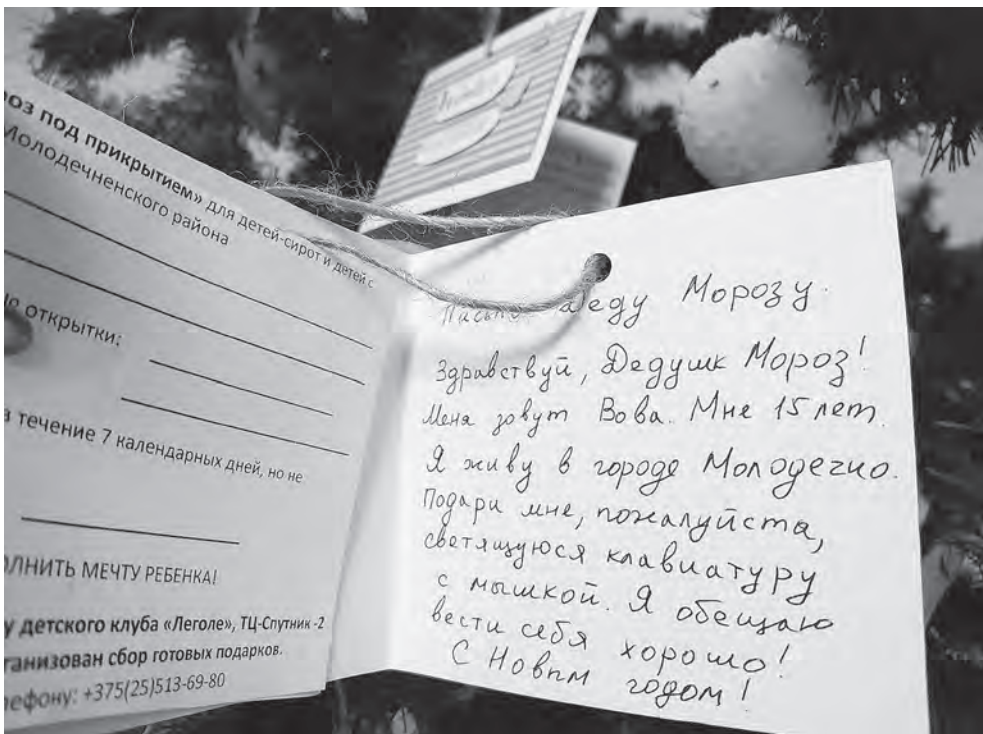 роз под прикрытием» для детей-сирот и детей с
Молодечненского района
о открытки:
в течение 7 календарных дней, но не
ОЛНИТЬ МЕЧТУ РЕБЕНКА!
у детского клуба «Леголе», ТЦ-Спутник -2
ганизован сбор готовых подарков.
лефону: +375(25)513-69-80
Деду Морозу.
Здравствуй, Дедушк Мороз!
Меня зовут Вова. Мне 15 лет.
Я живу в городе Молодечно.
Подари мне, пожалуйста,
светящуюся клавиатуру
с мышкой. Я обещаю
вести себя хорошо!
С Новым годом!